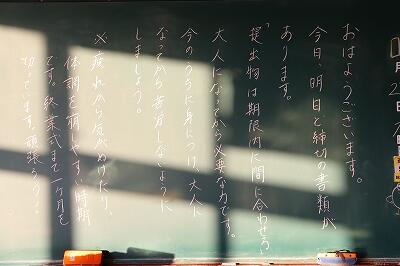 おはようございます。
今日、明日と締切の書類が
あります。
「提出物は期限内に間に合わせる」
大人になってから必要な力です。
今のうちに身につけ、大人に
なってから苦労しないように
しましょう。
※疲れから気がぬけたり、
体調を崩しやすい時期
です。終業式まで一ヶ月を
切っています。頑張ろう！